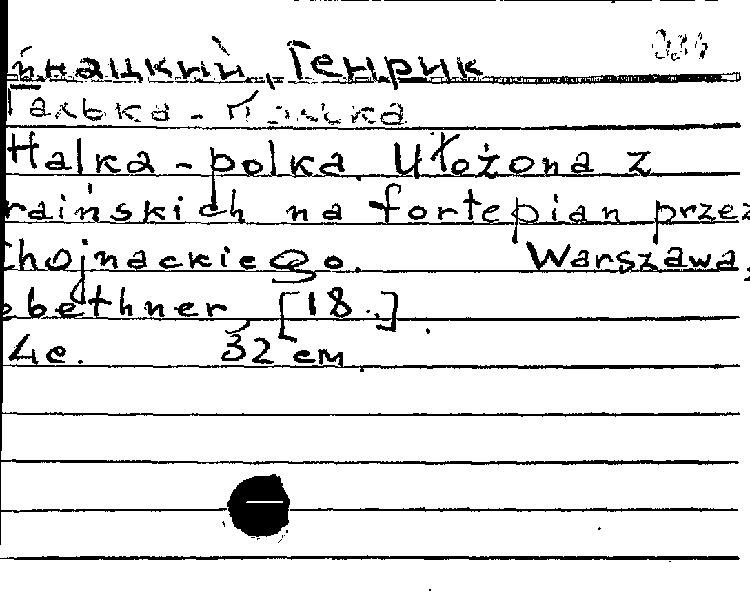 йнацкий, Генрик
Галька - Полька
Halka - polka. Ułożona z
raińskich na fortepian przez
Chojnackiego. Warszawa,
ebethner, [18..].
4c. 32 cm.